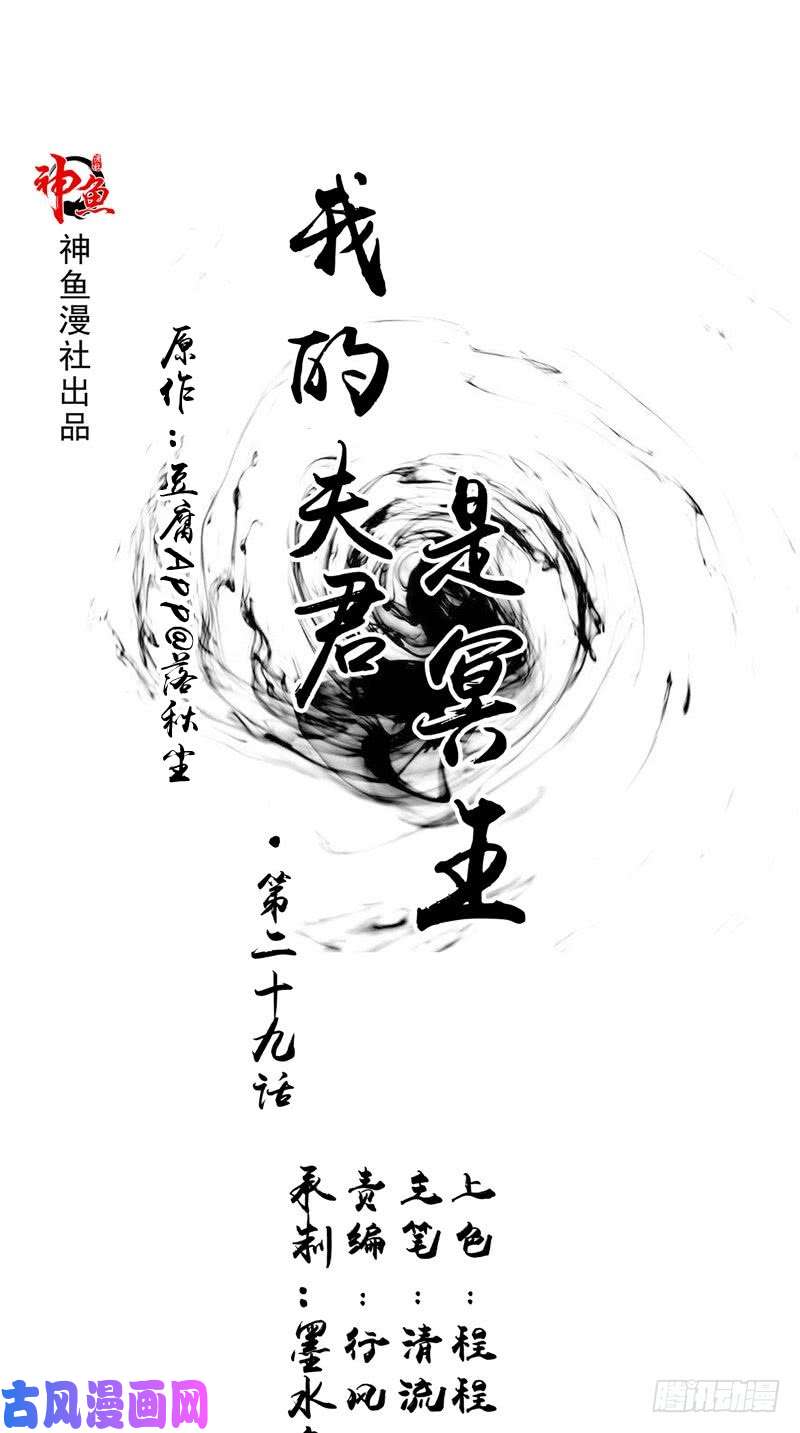 神鱼
神鱼漫社出品
原作:豆腐APP@落秋尘
我的夫君
是冥王
·第二十九话
上色:程程
主笔:清流
责编:行风
承制:墨水
古风漫画网
腾讯动漫